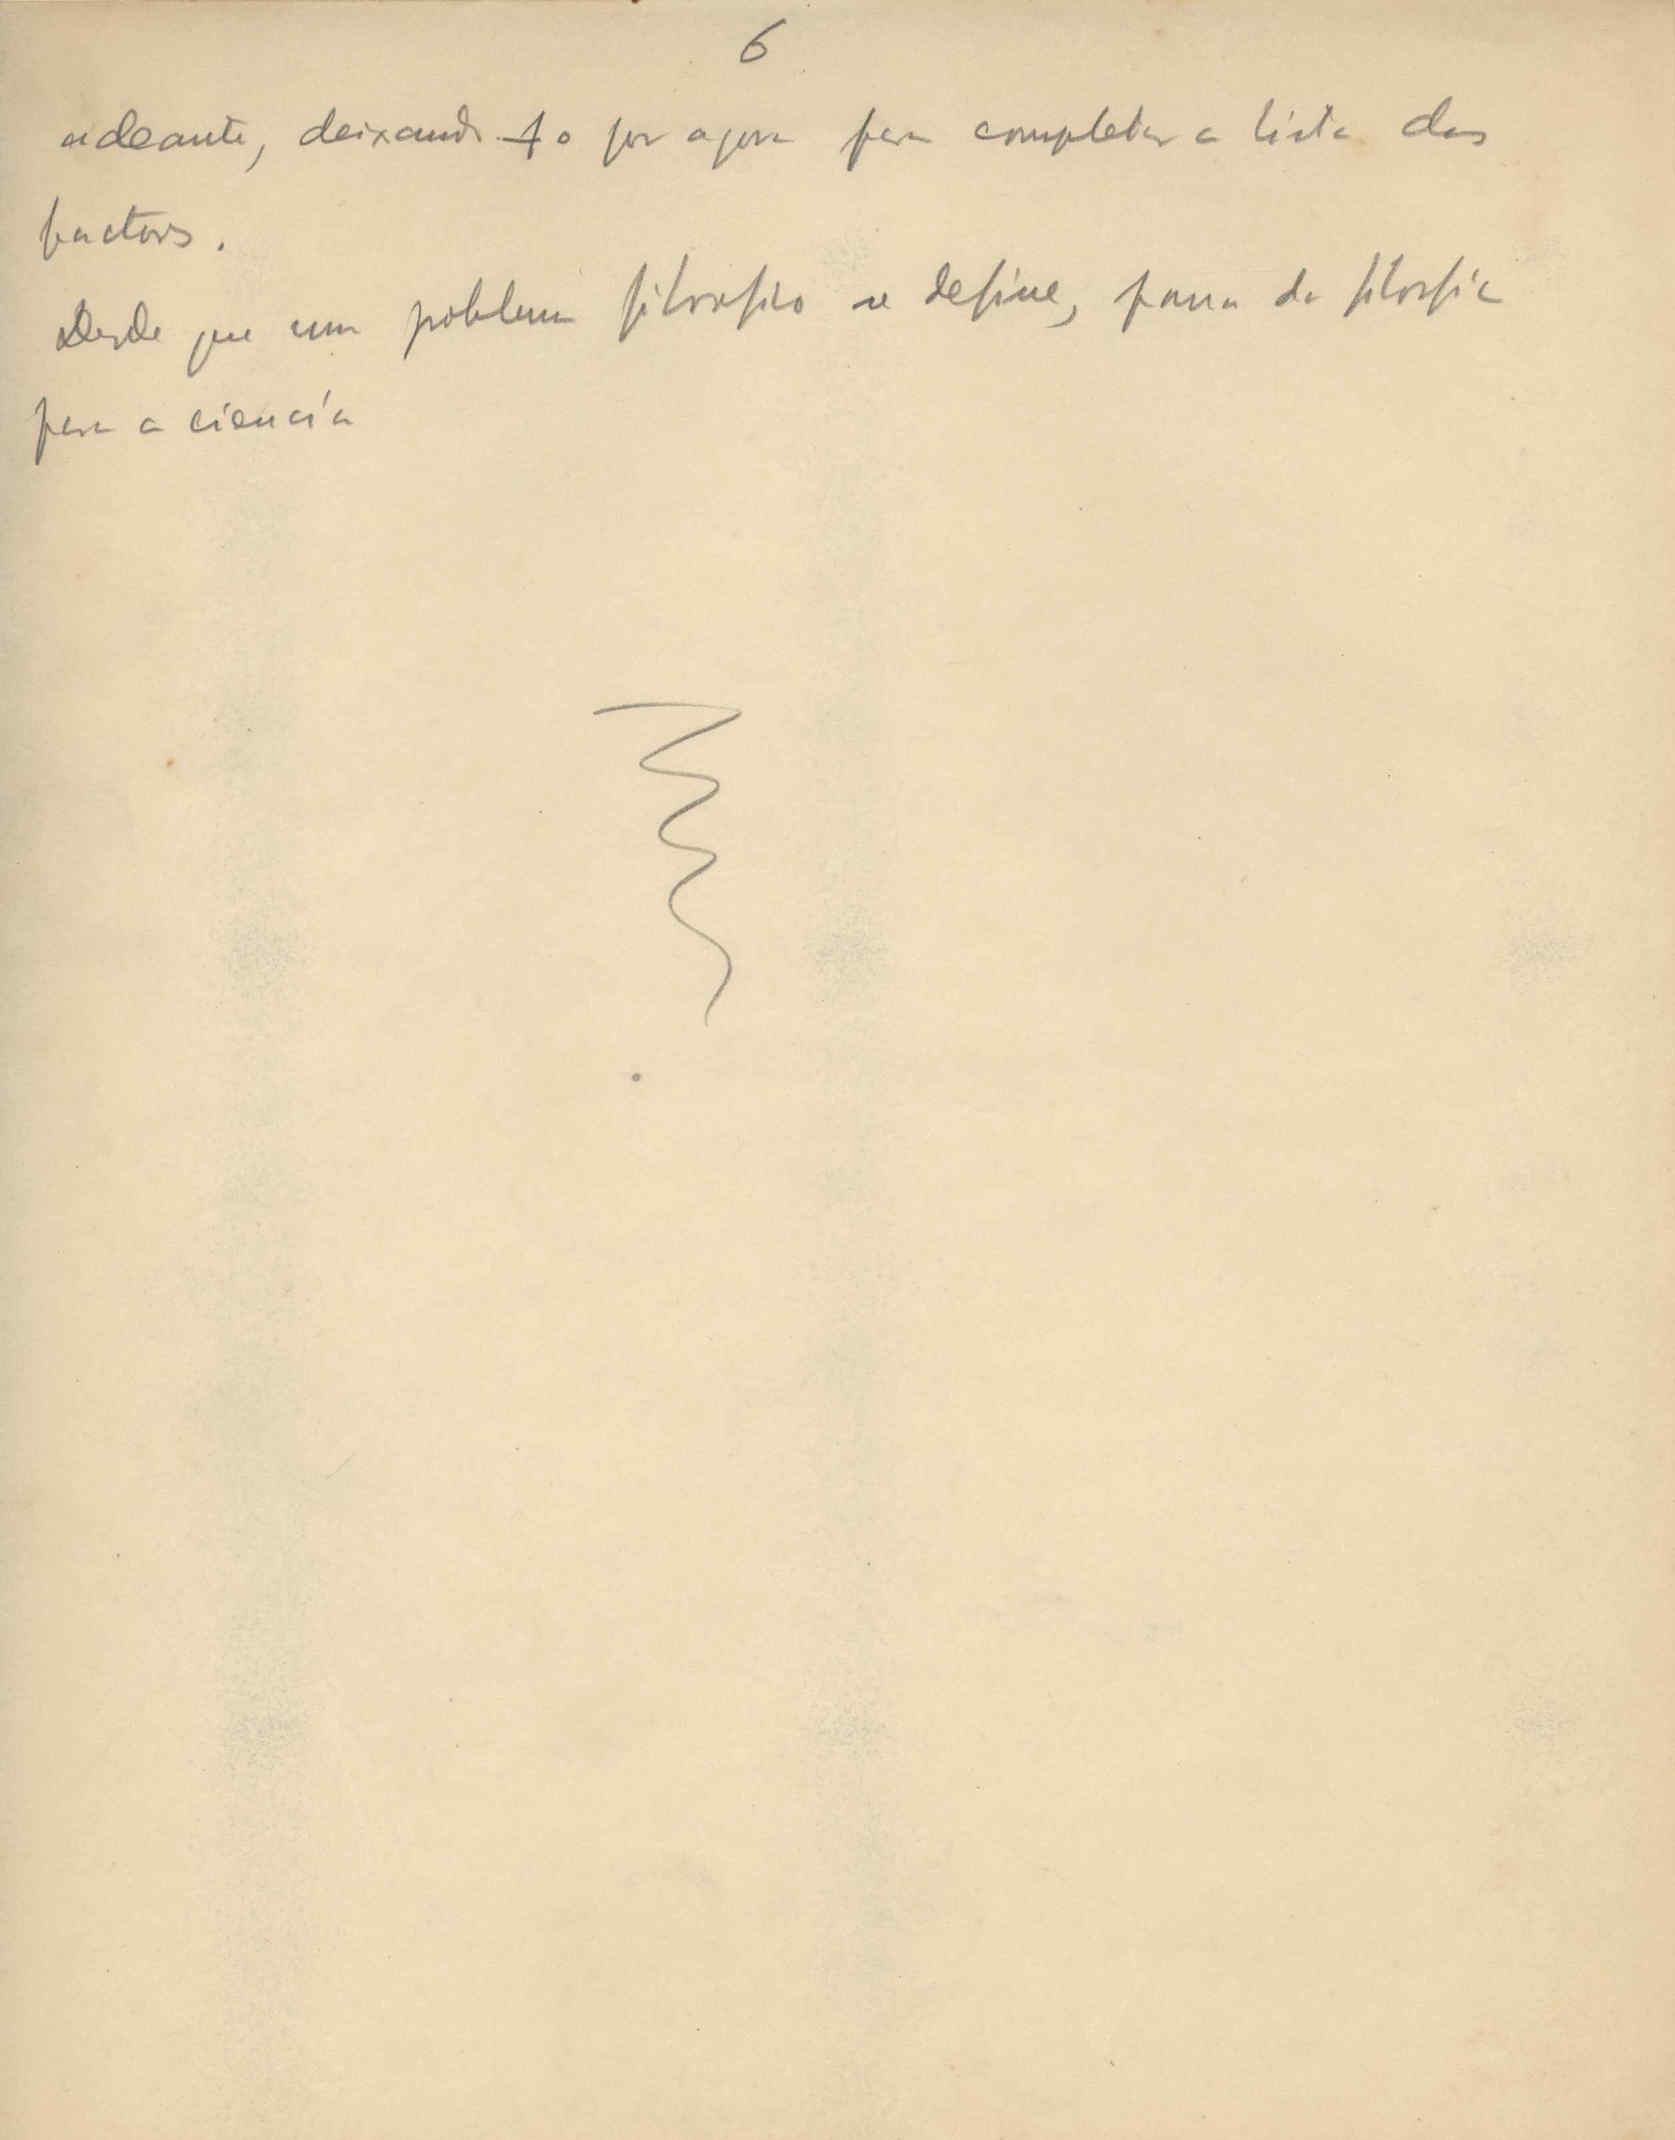 6
adeante, deixando-o por agora para completar a lista dos
factores.
Desde que um problema filosofico se define, passa da filosofia
para a ciencia